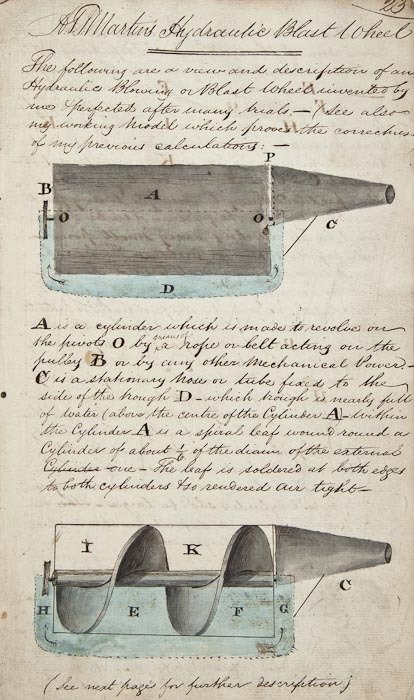 23
A D Martins Hydraulic Blast Wheel
The following are a view and description of an
Hydraulic Blowing or Blast Wheel invented by
me & perfected after many trials. — (see also
my working model which proves the correctness
of my previous calculations: —
P
B A
O O
C
D
A is a cylinder which is made to revolve on
the pivots O by means of a rope or belt acting on the
pulley B or by any other Mechanical Power. —
C is a stationary nose or tube fixed to the
side of the trough D — which trough is nearly full
of water (above the centre of the Cylinder A — within
the Cylinder A is a spiral leaf wound round a
Cylinder of about 1/6 of the diamr of the external
Cylinder one — The leaf is soldered at both edges
to both cylinders & so rendered air tight —
I K
C
H E F G
(See next page for further description)